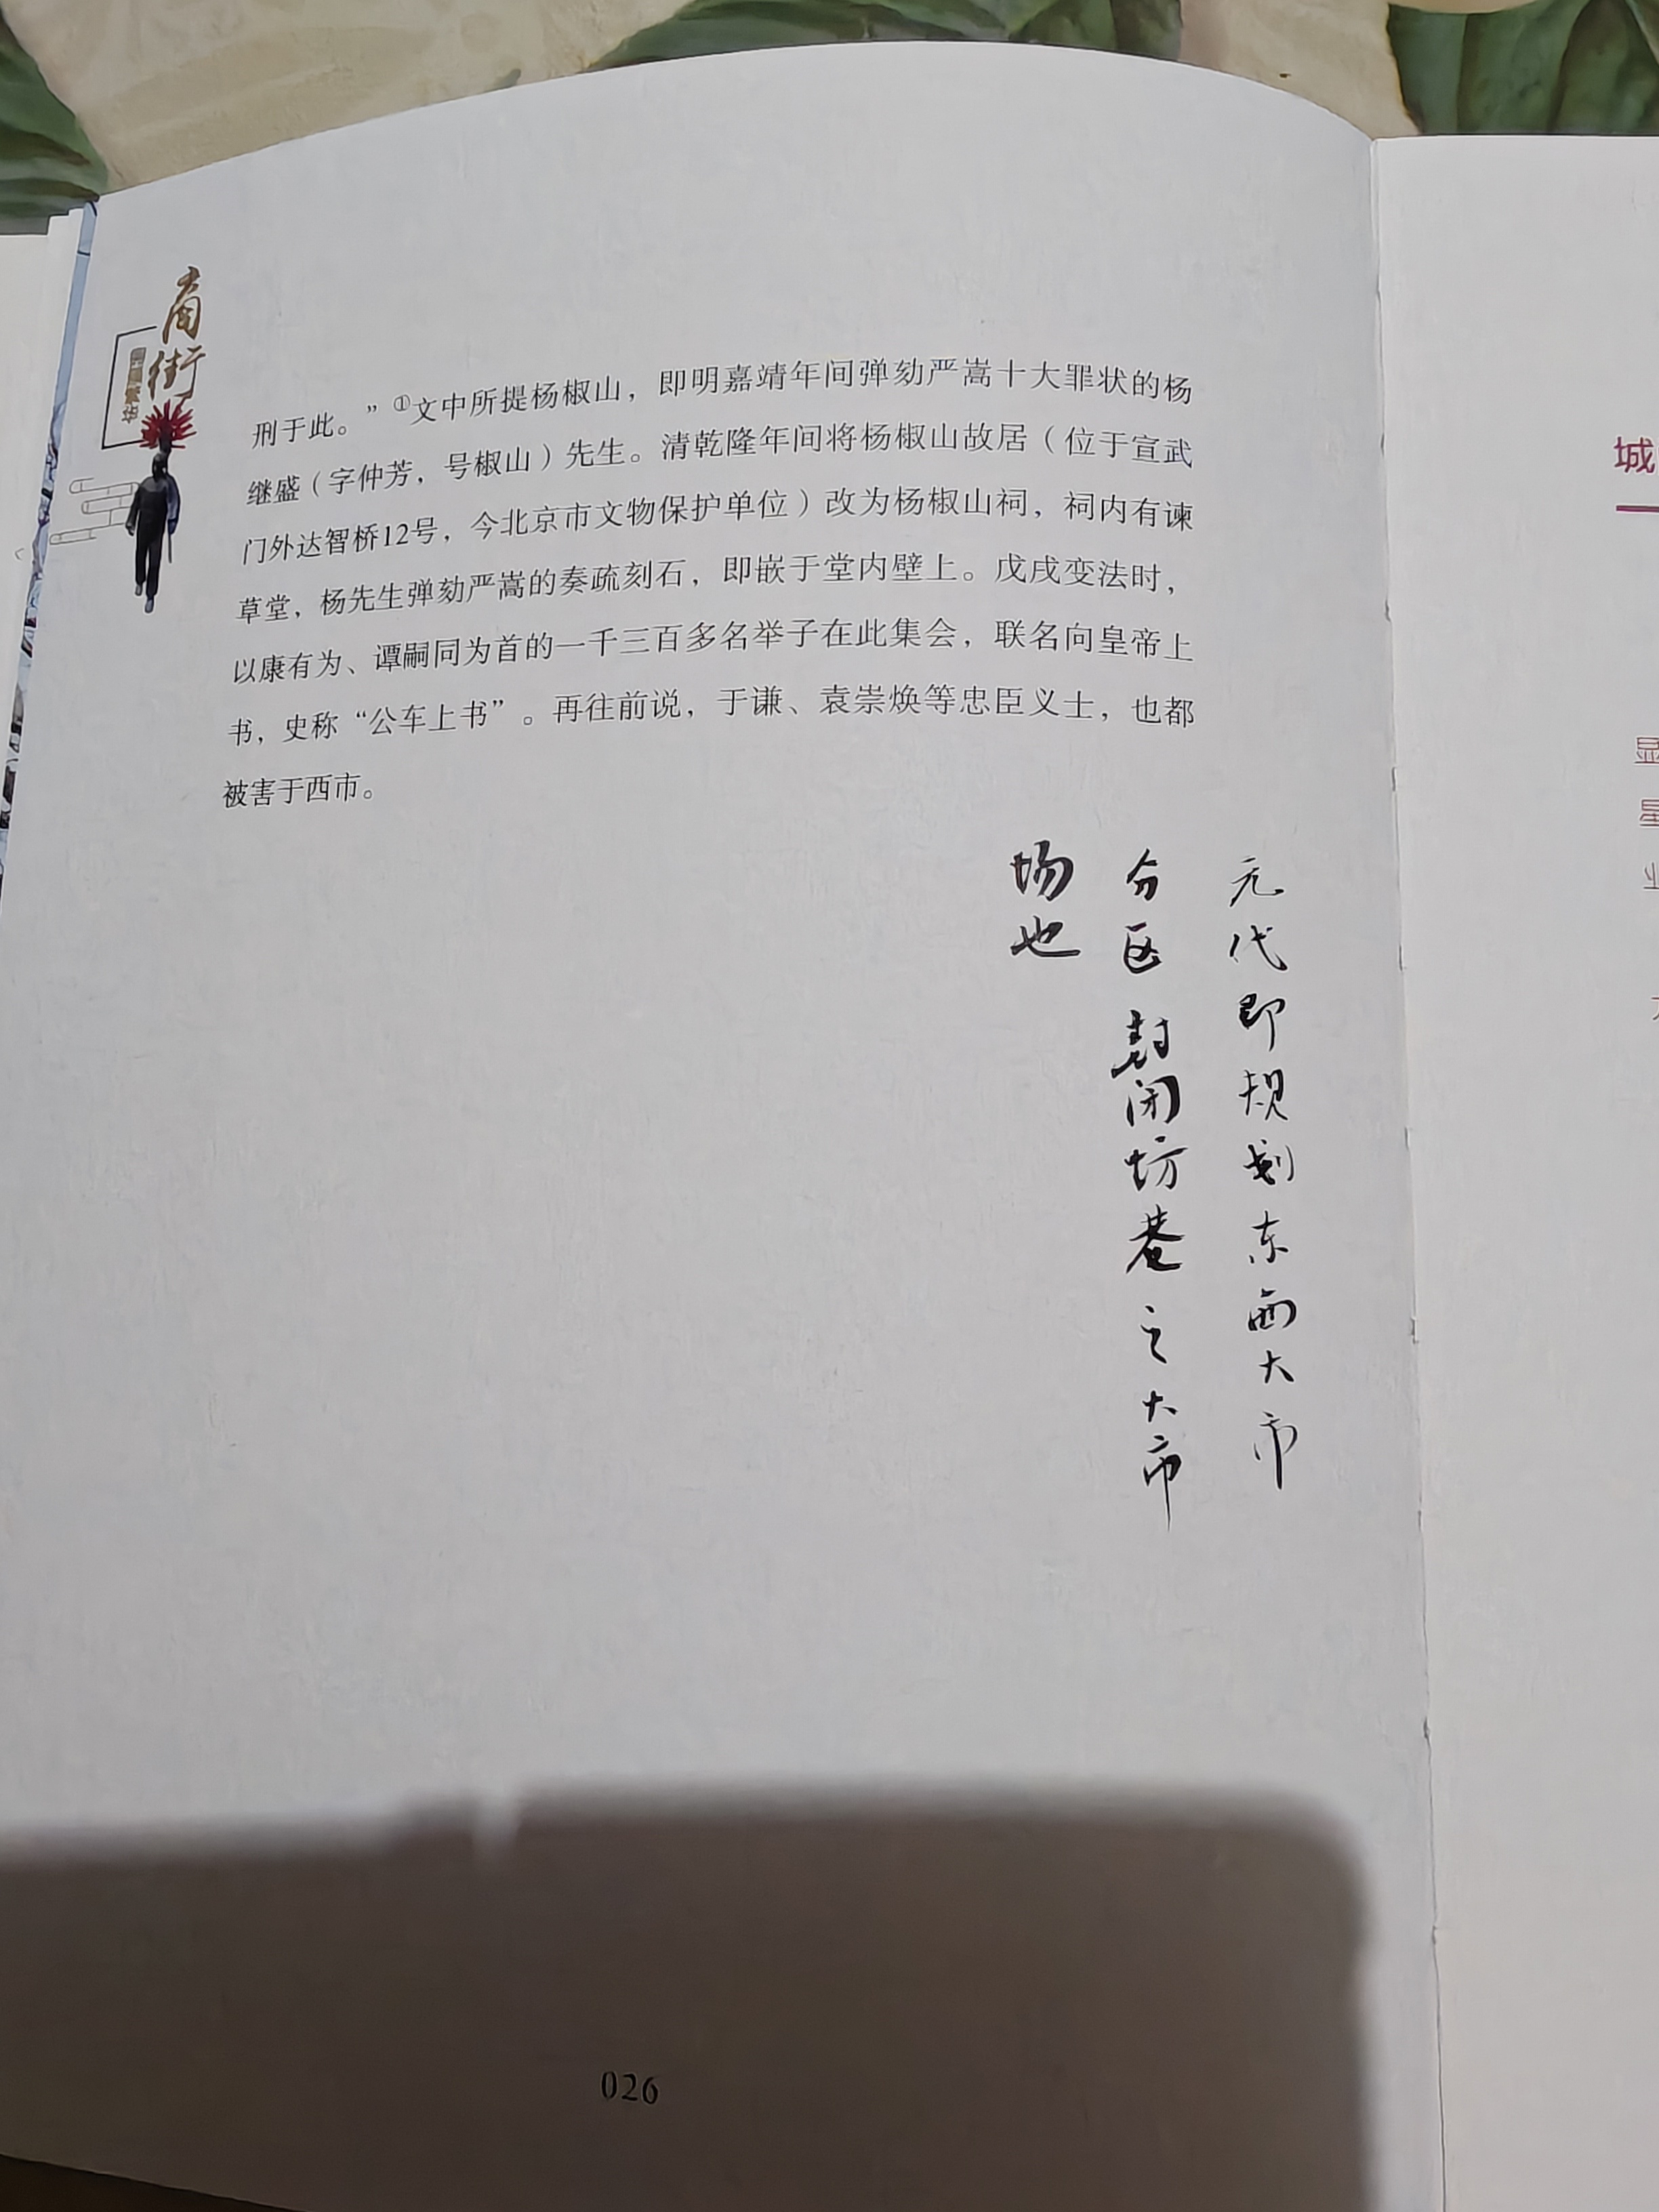 商街
繁华
刑于此。”①文中所提杨椒山，即明嘉靖年间弹劾严嵩十大罪状的杨
继盛（字仲芳，号椒山）先生。清乾隆年间将杨椒山故居（位于宣武
门外达智桥12号，今北京市文物保护单位）改为杨椒山祠，祠内有谏
草堂，杨先生弹劾严嵩的奏疏刻石，即嵌于堂内壁上。戊戌变法时，
以康有为、谭嗣同为首的一千三百多名举子在此集会，联名向皇帝上
书，史称“公车上书”。再往前说，于谦、袁崇焕等忠臣义士，也都
被害于西市。
元代即规划东西大市
分区封闭坊巷之大市
场也
026
城
显
星
业